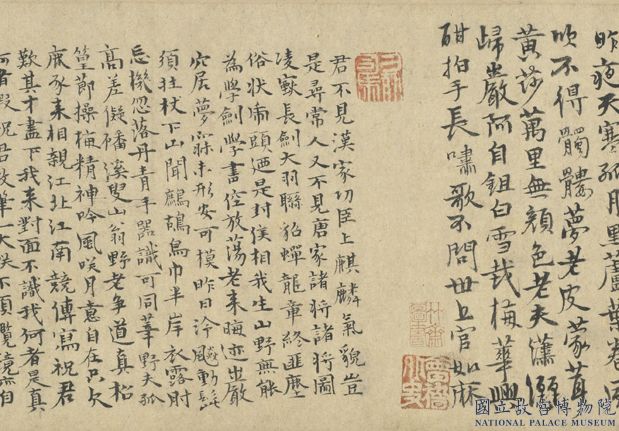 昨夜天寒孤月黑蘆葉卷風
吹不得髑髏夢老皮蒙茸
黃莎萬里無顏色老夫瀟灑
歸巖阿自鉏白雪栽梅華興
酣拍手長嘯歌不問世上官如麻
君不見漢家功臣上麒麟氣貌豈
是尋常人又不見唐家諸將諸將圖
凌長劍大羽聯貂蟬龍章終匪塵
俗狀虎頭廼是封侯相我生山野無能
為學劍學畫空放蕩老來晦迹巖
穴居夢寐未形安可模昨日冷飈動髭
須拄杖下山聞鷓鴣烏巾半岸衣露肘
忘機忽落丹青手器識可同莘野夫孤
高差擬磻溪叟山翁野老爭道真松
篁節操梅精神吟風咲月意自在只欠
鹿豕來相親江北江南競傳寫祝君
歎其才盡下我來對面不識我何者是真
何者假祝君放筆一大咲不須攬鏡亦自
國立故宮博物院
NATIONAL PALACE MUSEUM